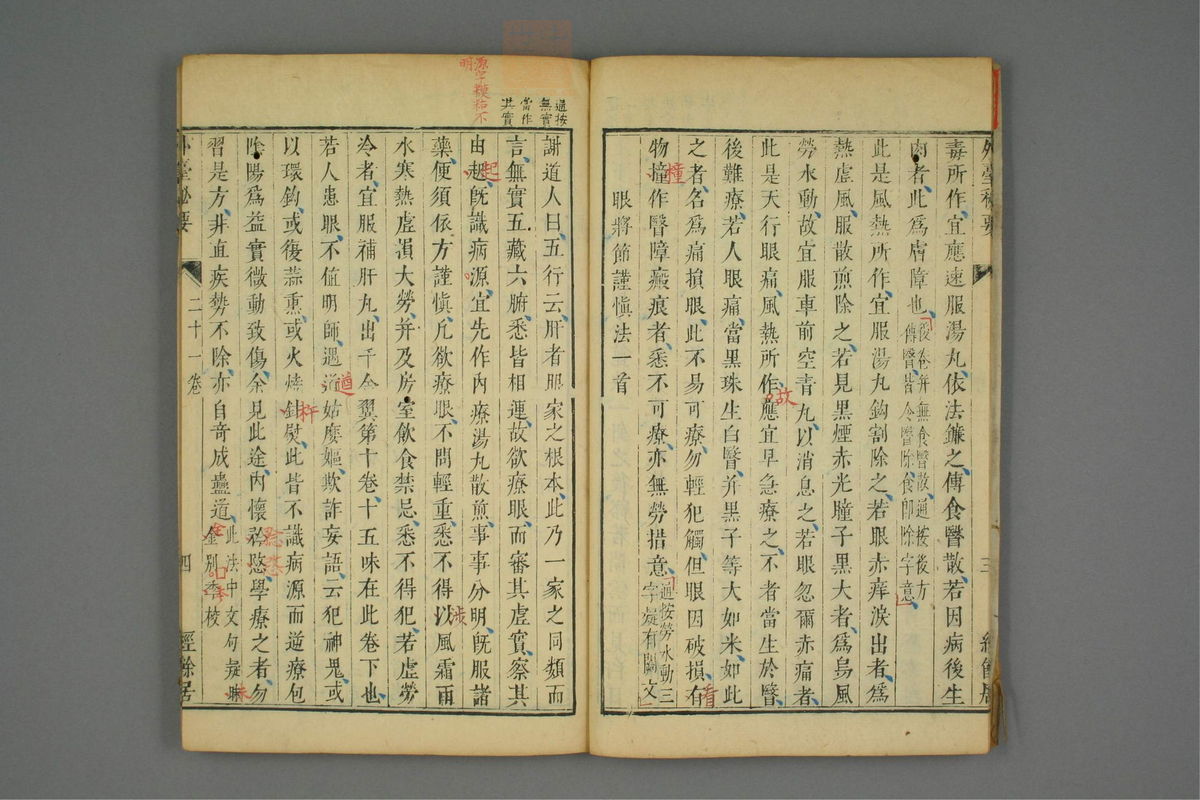 外臺秘要
毒所作宜應速服湯丸依法鐮之傅食瞖散若因病後生
肉者此爲膚障也後卷并無食瞖散通按後方傅瞖皆令瞖除食卽除字意
此是風熱所作宜服湯丸鈎割除之若眼赤痒淚出者爲
熱虛風服散煎除之若見黑煙赤光瞳子黑大者爲烏風
勞水動故宜服車前空青丸以消息之若眼忽爾赤痛者
此是天行眼痛風熱所作應宜早急療之不者當生於瞖
故
後難療若人眼痛當黑珠生白瞖并黑子等大如米如此
之者名爲痛損眼此不易可療勿輕犯觸但眼因破損有
看
物撞作瞖障瘢痕者悉不可療亦無勞措意通按勞水動三字疑有闕文
撞
眼將節謹愼法一首
三
通按無實當作其實
謝道人曰五行云肝者眼家之根本此乃一家之同類而
言無實五藏六腑悉皆相連故欲療眼而審其虛實察其
由趣旣識病源宜先作內療湯丸散煎事事分明旣服諸
起
藥便須依方謹愼凡欲療眼不問輕重悉不得以風霜雨
涉
水寒熱虛損大勞并及房室飮食禁忌悉不得犯若虛勞
冷者宜服補肝丸出千金翼第十卷十五味在此卷下也
若人患眼不値明師遇道姑麼嫗欺詐妄語云犯神鬼或
以環鈎或復蒜熏或火燒針熨此皆不識病源而道療包
除陽爲益實微動致傷余見此途內懷矜愍學療之者勿
習是方非直疾勢不除亦自奇成蠱道此法中文句疑
外臺祕要
二十一卷
四
經餘居